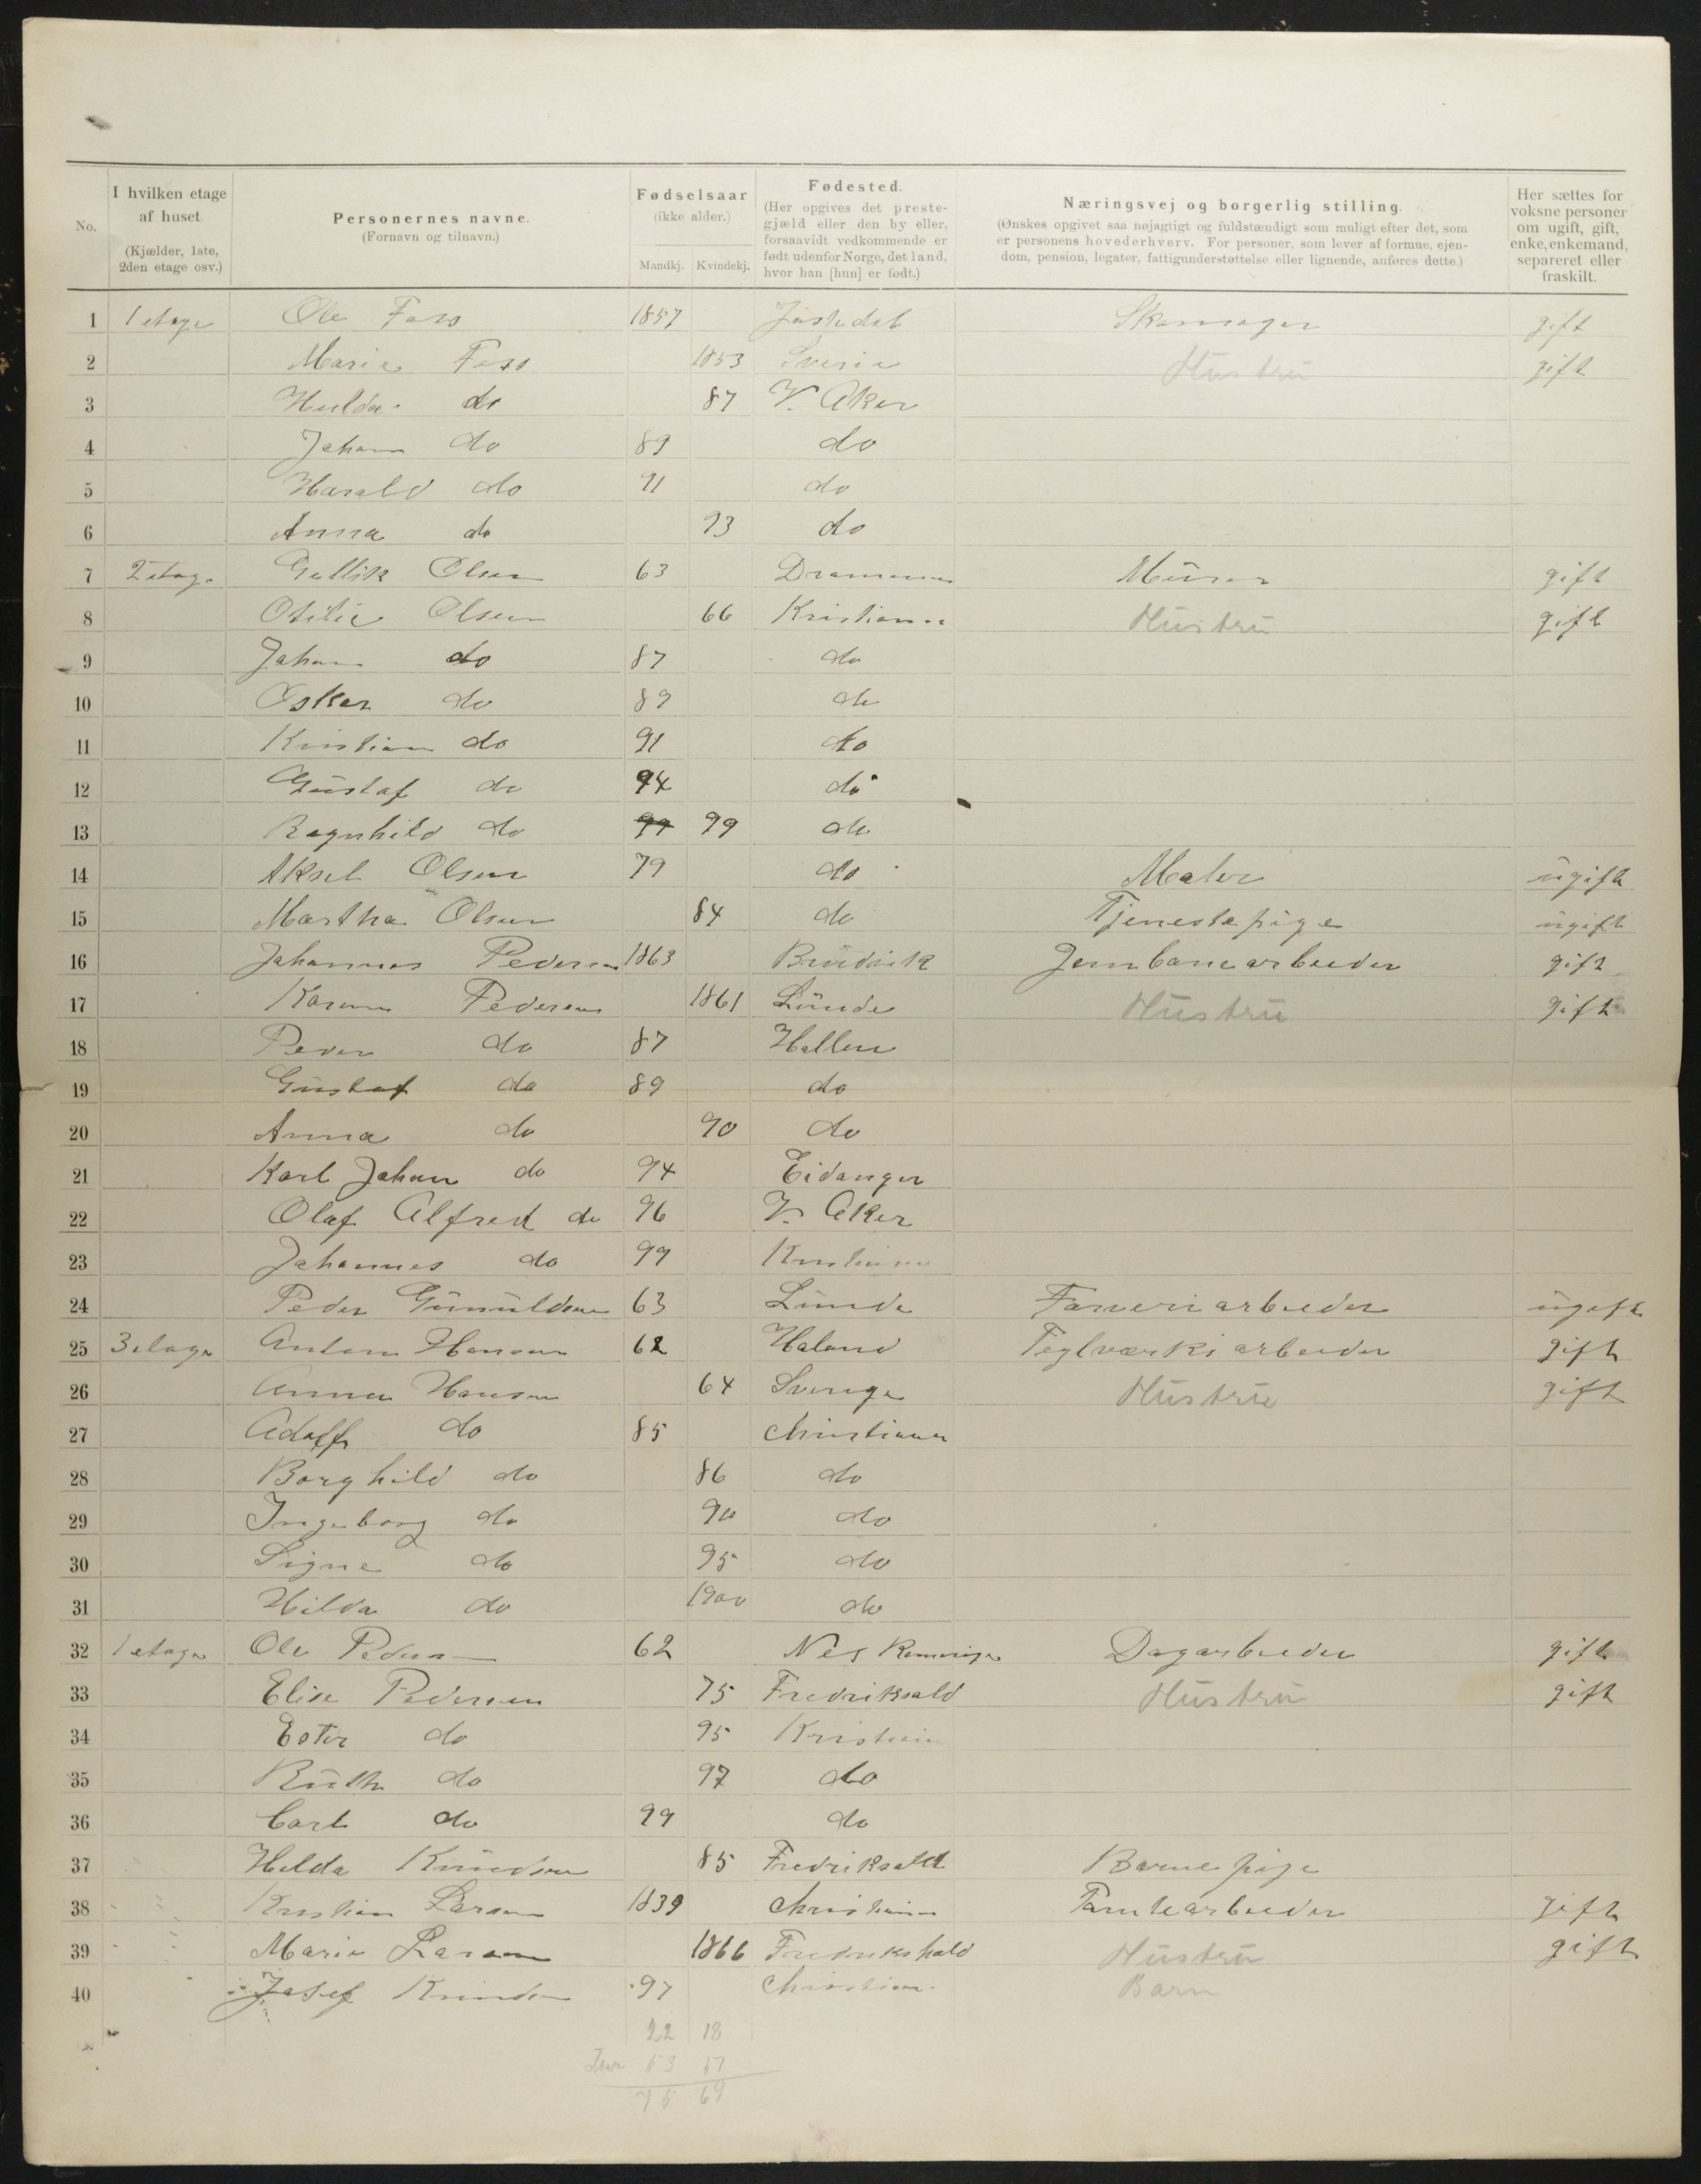 No.
I hvilken etage af huset.
(Kjælder, 1ste, 2den etage osv.)
Personernes navne.
(Fornavn og tilnavn.)
Fødselsaar
(ikke alder.)
Mandkj. Kvindekj.
Fødested.
(Her opgives det prestegjæld eller den by eller, forsaavidt vedkommende er født udenfor Norge, det land, hvor han [hun] er født.)
Næringsvej og borgerlig stilling.
(Ønskes opgivet saa nøjagtigt og fuldstændigt som muligt efter det, som er personens hovederhverv. For personer, som lever af formue, ejendom, pension, legater, fattigunderstøttelse eller lignende, anføres dette.)
Her sættes for voksne personer om ugift, gift, enke, enkemand, separeret eller fraskilt.
1 1 etage Ole Foss 1857 Justedal Skomager gift
2 Marie Foss 1853 Sverie Hustru gift
3 Hulda do 87 V. Aker
4 Johan do 89 do
5 Harald do 91 do
6 Anna do 93 do
7 2 etage Gullik Olsen 63 Drammen Murer gift
8 Otilie Olsen 66 Kristiania Hustru gift
9 Johan do 87 do
10 Oskar do 89 do
11 Kristian do 91 do
12 Gustaf do 94 do
13 Ragnhild do 99 99 do
14 Aksel Olsen 79 do Maler ugift
15 Martha Olsen 84 do Tjenestepige ugift
16 Johannes Pedersen 1863 Jernbanearbeider gift
17 Pedersen 1861 Lunde Hustru gift
18 Peder do 87 Hollen
19 Gustaf do 89 do
20 Anna do 90 do
21 Karl Johan do 94 Eidanger
22 Olaf Alfred do 96 V. Aker
23 Johannes do 99 Kristiania
24 Peder 63 Lunde arbeider ugift
25 3 etage Anton Hansen 62 Holand Teglværksarbeider gift
26 Anna Hansen 64 Sverige Hustru gift
27 Adolf do 85 Christiania
28 Borghild do 86 do
29 Ingeborg do 90 do
30 Signe do 95 do
31 Hilda do 1900 do
32 1 etage Ole Pedersen 62 Nes Romerige Dagarbeider gift
33 Elise Pedersen 75 Fredriksald Hustru gift
34 Ester do 95 Kristiania
35 Ruth do 97 do
36 Carl do 99 do
37 Hilda Knudsen 85 Fredriksald Barnepige
38 Kristian Larsen 1839 Christiania Tomtearbeider gift
39 Marie Larsen 1866 Fredrikshald Hustru gift
40 Josef Knudsen 97 Christiania Barn
22 18
53 51
75 69